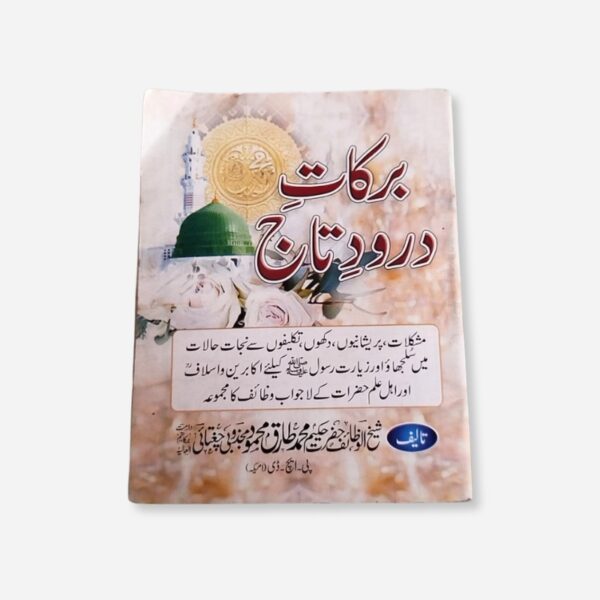 برکاتِ
درودِ تاج
مشکلات، پریشانیوں، دکھوں، تکلیفوں سے نجات حالات
میں سُلجھاؤ اور زیارت رسول ﷺ کیلئے اکابرین و اسلاف
اور اہل علم حضرات کے لاجواب وظائف کا مجموعہ
تالیف
شیخ الوظائف حضرت حکیم محمد طارق محمود مجذوبی چغتائی
پی۔ایچ۔ڈی (امریکہ)